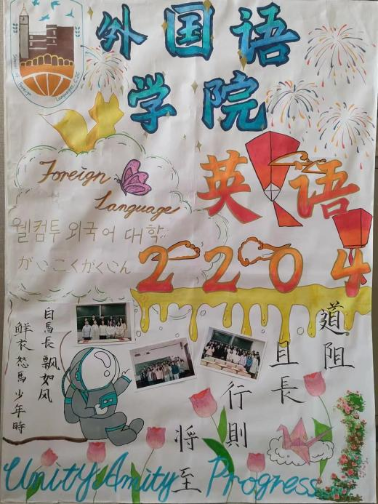 外国语
学院
Foreign
Language
英语
웰컴투 외국어 대학
がいこくがくいん
2204
道阻
且長
行則
將至
自馬長飄如风
鲜衣怒馬少年時
Unity Amity Progress